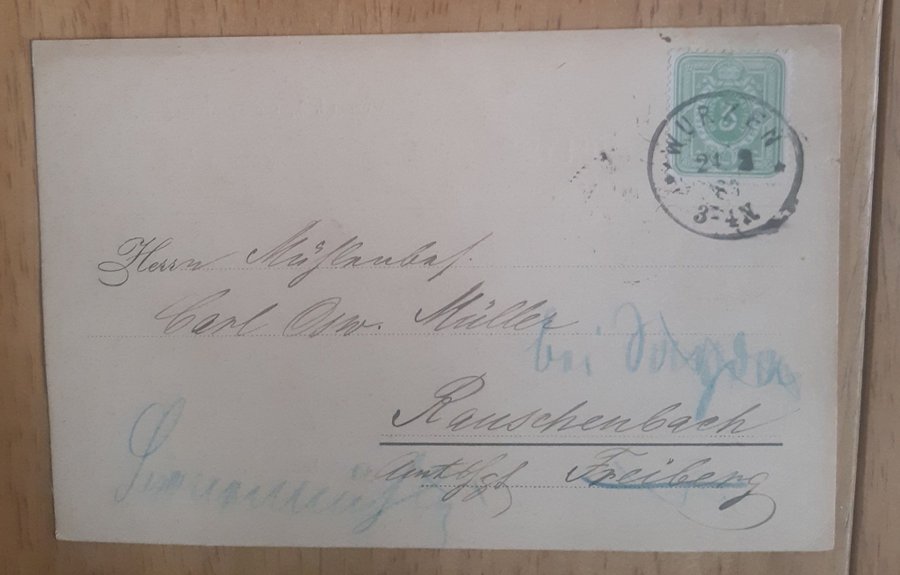 WURZEN
21 8
3-4 N
Herrn Mühlenbes.
Carl Osw. Müller
bei Sayda
Rauschenbach
Amtshpt Freiberg